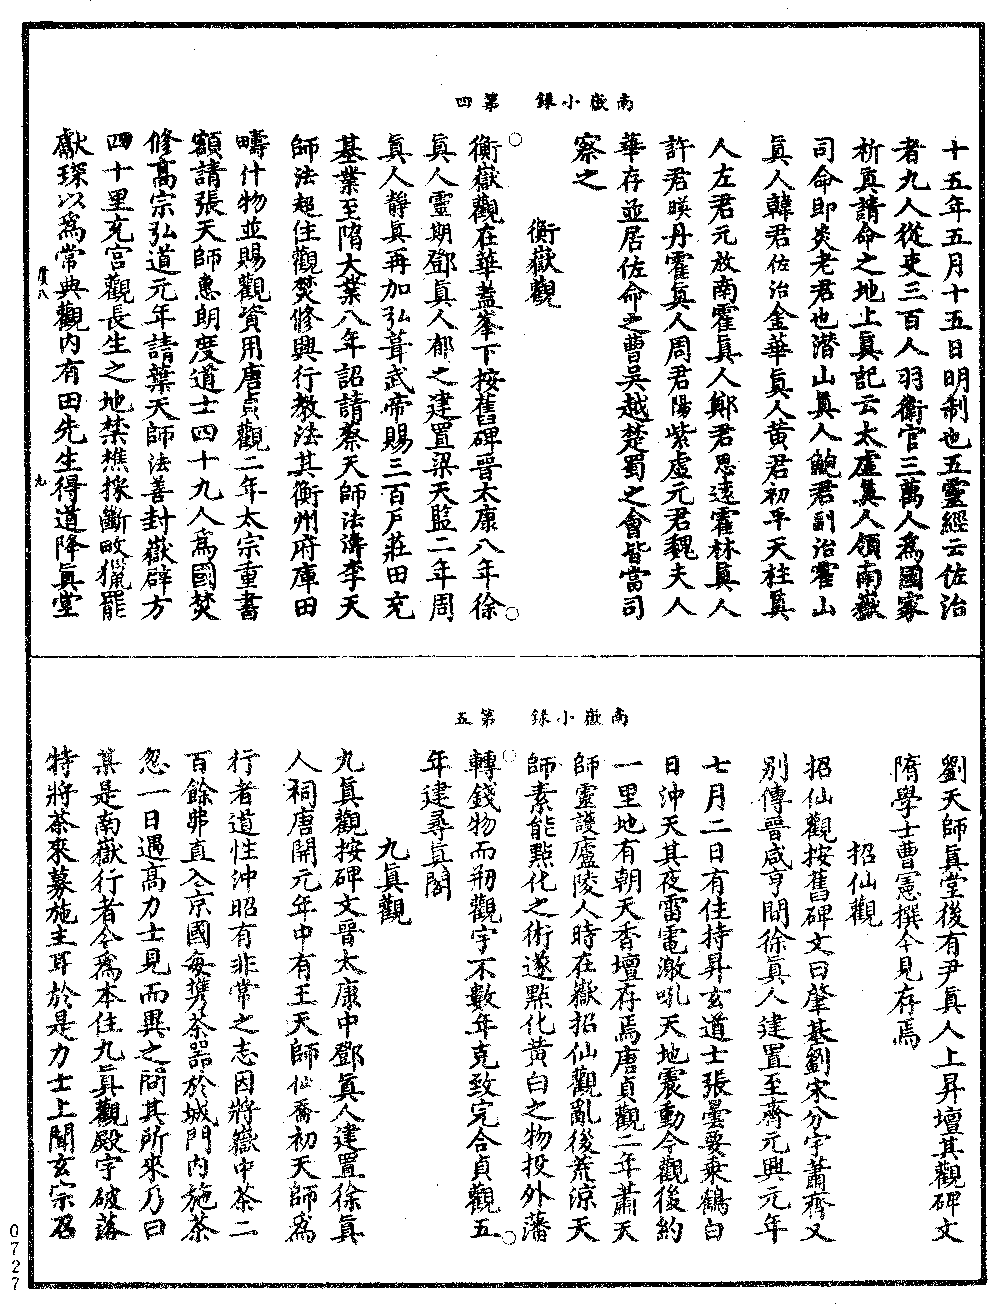 南嶽小錄　第四
十五年五月十五日明制也五靈經云佐治
者九人從吏三百人羽衛官三萬人爲國家
祈真請命之地上真記云太虛真人領南嶽
司命即炎老君也潛山真人鮑君副治霍山
真人韓君佐治金華真人黄君初平天柱真
人左君元放南霍真人鄭君思遠霍林真人
許君暎丹霍真人周君陽紫虛元君魏夫人
華存並居佐命之曹吳越楚蜀之會皆當司
察之
衡嶽觀
衡嶽觀在華蓋峯下按舊碑晉太康八年徐
真人靈期鄧真人郁之建置梁天監二年周
真人靜真再加弘葺武帝賜三百戶莊田充
基業至隋大業八年詔請蔡天師法濤李天
師法超住觀焚修興行教法其衡州府庫田
疇什物並賜觀資用唐貞觀二年太宗重書
額請張天師惠朗度道士四十九人爲國焚
修高宗弘道元年請葉天師法善封嶽辟方
四十里充宮觀長生之地禁樵採斷畋獵罷
獻琛以爲常典觀内有田先生得道降真堂
九
南嶽小錄　第五
劉天師真堂後有尹真人上昇壇其觀碑文
隋學士曹憲撰今見存焉
招仙觀
招仙觀按舊碑文曰肇基劉宋分宇蕭齊又
別傳晉咸亨間徐真人建置至齊元興元年
七月二日有住持昇玄道士張曇要乘鶴白
日沖天其夜雷電激吼天地震動今觀後約
一里地有朝天香壇存焉唐貞觀二年蕭天
師靈護廬陵人時在嶽招仙觀亂後荒涼天
師素能點化之術遂點化黄白之物投外藩
轉錢物而刱觀宇不數年克致完合貞觀五
年建尋真閣
九真觀
九真觀按碑文晉太康中鄧真人建置徐真
人祠唐開元年中有王天師仙喬初天師爲
行者道性沖昭有非常之志因將嶽中茶二
百餘丳直入京國每攜茶器於城門内施茶
忽一日遇高力士見而異之問其所來乃曰
某是南嶽行者今爲本住九真觀殿宇破落
特將茶來募施主耳於是力士上聞玄宗召
0727